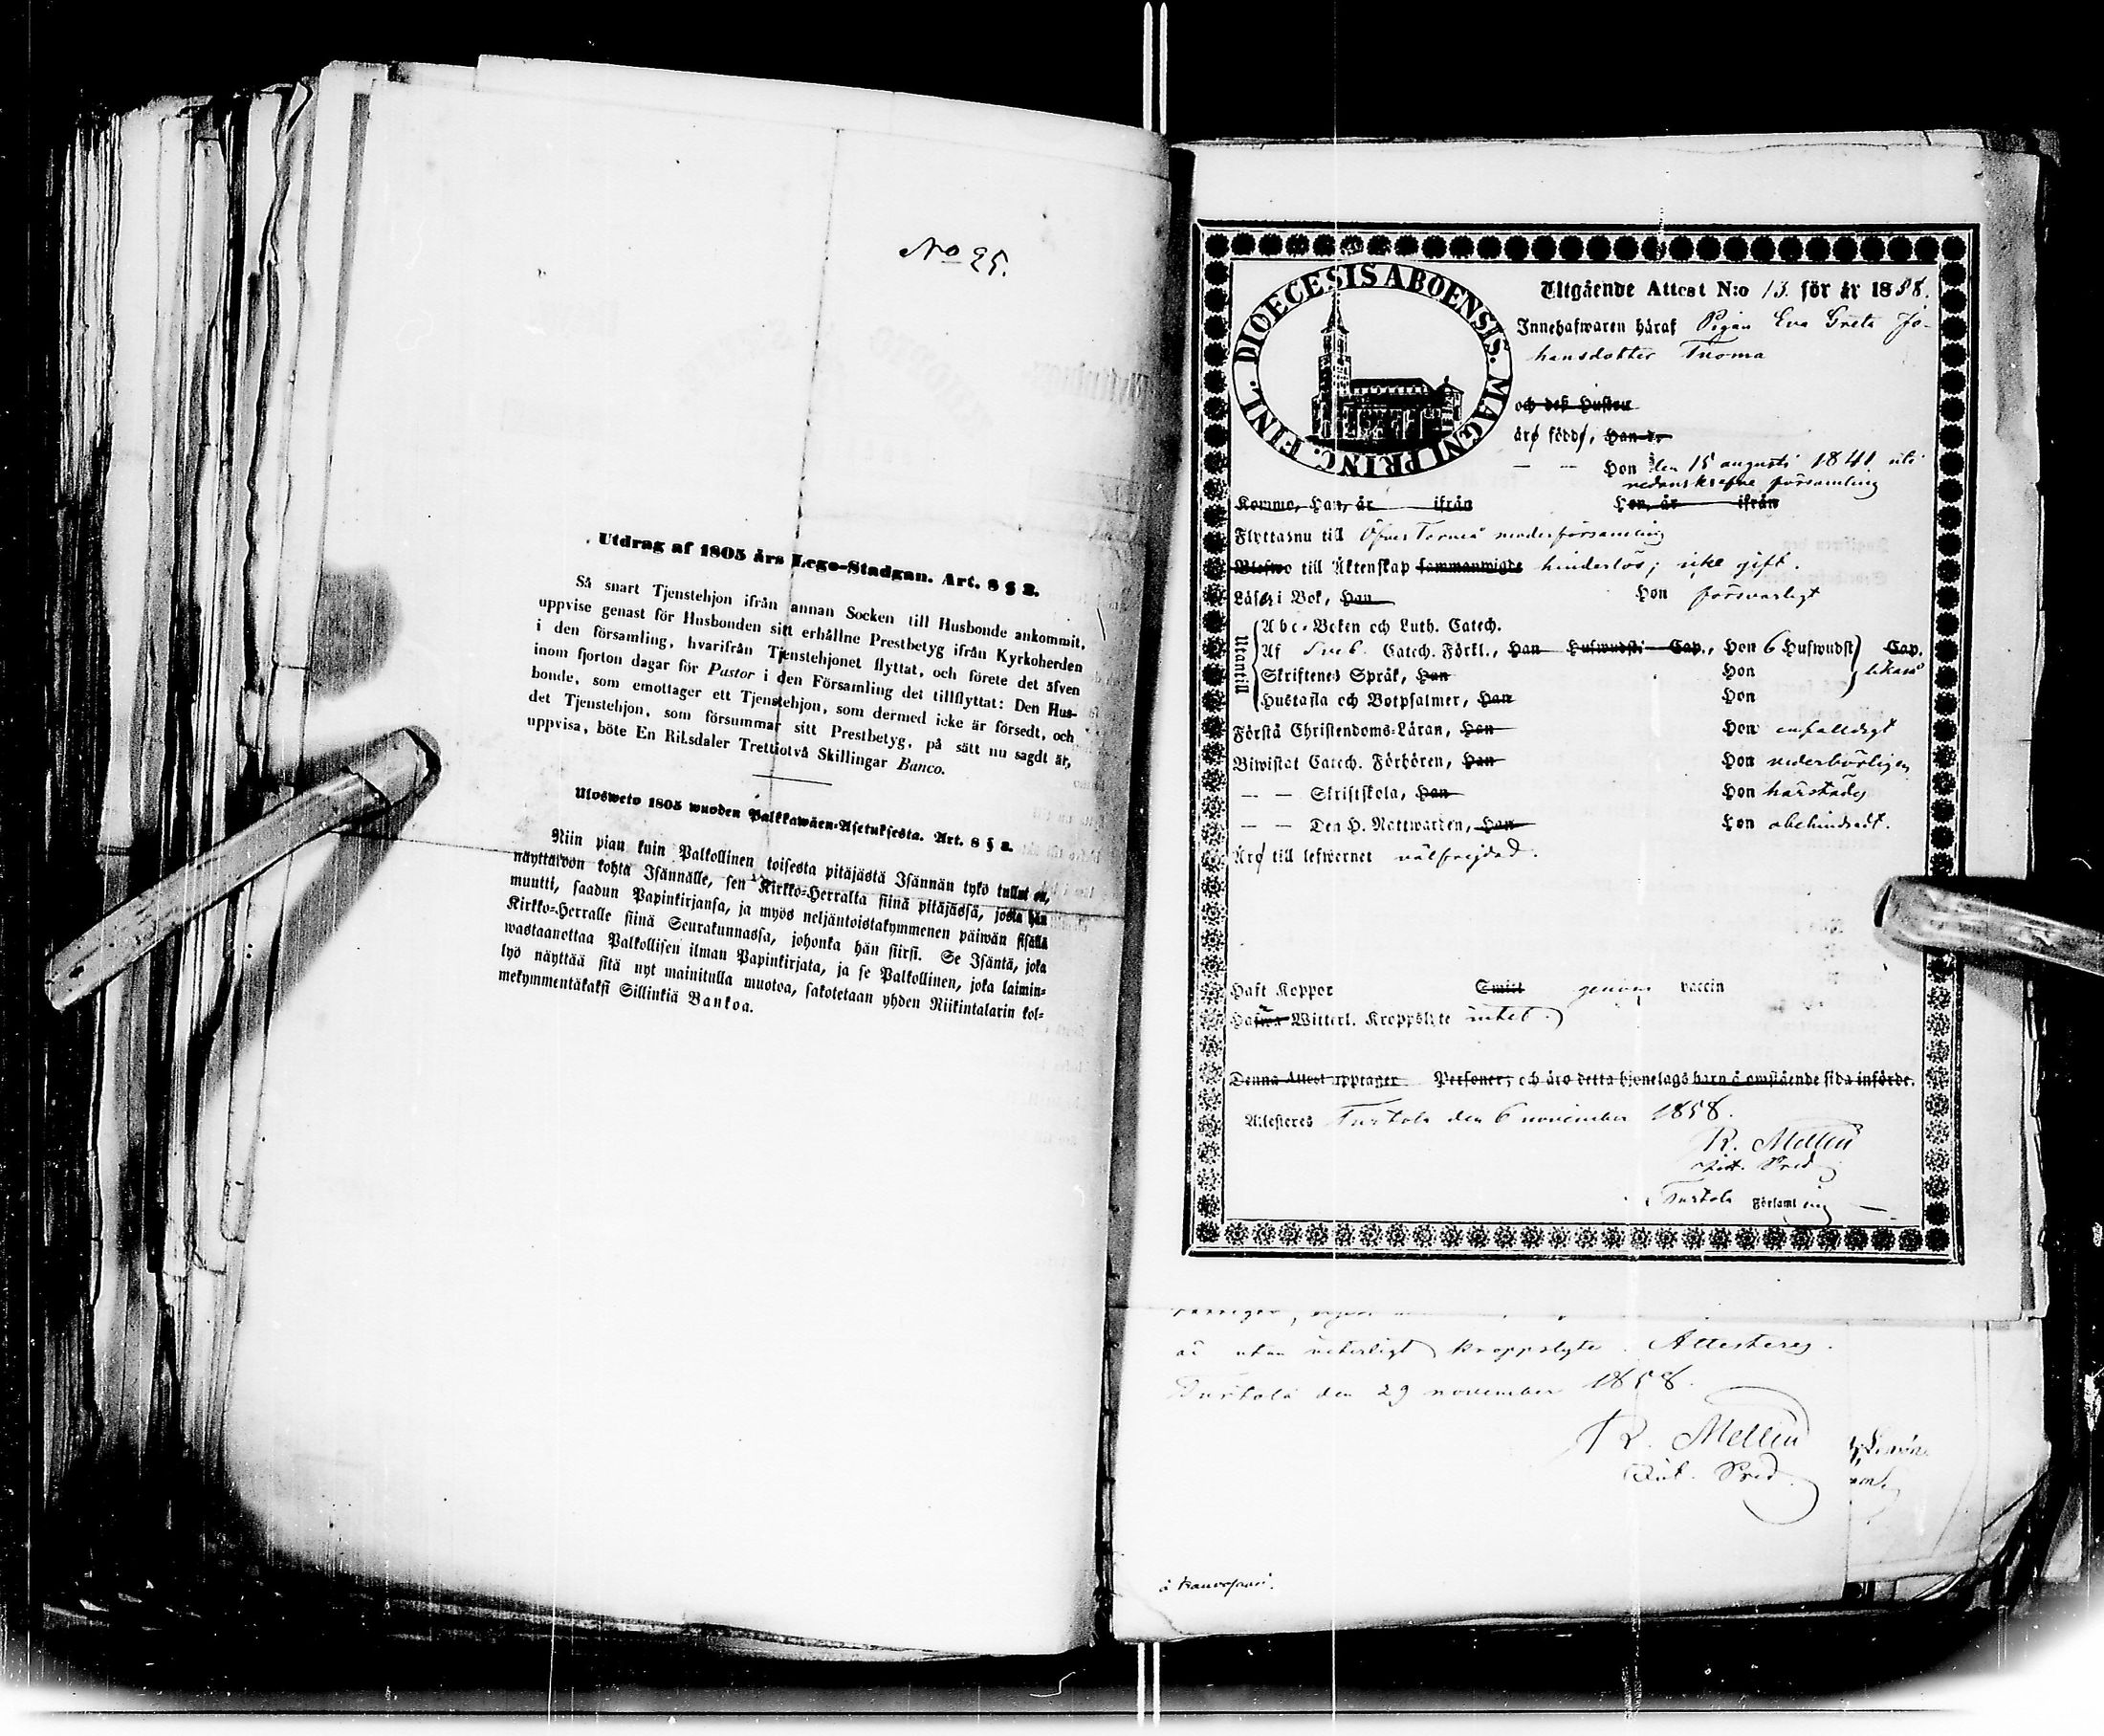 No 25.
Utdrag af 1805 års Lego-Stadgan. Art. 8 § 2.
Så snart Tjenstehjon ifrån annan Socken till Husbonde ankommit,
uppvise genast för Husbonden sitt erhållne Prestbetyg ifrån Kyrkoherden
i den församling, hvarifrån Tjenstehjonet flyttat, och förete det äfven
inom fjorton dagar för Pastor i den Församling det tillflyttat: Den Hus-
bonde, som emottager ett Tjenstehjon, som dermed icke är försedt, och
det Tjenstehjon, som försummar sitt Prestbetyg, på sätt nu sagdt är,
uppvisa, böte En Riksdaler Trettiotvå Skillingar Banco.
Ulosweto 1805 wuoden Palkkawäen-Asetuksesta. Art. 8 § 2.
Niin pian kuin Palkollinen toisesta pitäjästä Isännän tykö tullut on,
näyttäköön kohta Isännälle, sen Kirkko-Herralta siinä pitäjässä, josta hän
muutti, saadun Papinkirjansa, ja myös neljäntoistakymmenen päiwän sisällä
Kirkko-Herralle siinä Seurakunnassa, johonka hän siirsi. Se Isäntä, joka
wastaanottaa Palkollisen ilman Papinkirjata, ja se Palkollinen, joka laimin-
lyö näyttää sitä nyt mainitulla muotoa, sakotetaan yhden Riikintalarin kol-
mekymmentäkaksi Sillinkiä Bankoa.
DIOECESIS ABOENSIS. MAGNI PRINC. FINL.
Utgående Attest N:o 13. för år 1858.
Innehafwaren häraf Pigan Eva Greta Jo-
hansdotter Tuoma
och deß Hustru
äro födde, Han d.
— — Hon den 15 augusti 1841 uti
nedanskrefne församling
Kommo, Han, år ifrån Hon, år ifrån
Flytta nu till Öfver Torneå moderförsamling
till Äktenskap sammanwigde hinderlös; icke gift.
Läser i Bok, Han Hon försvarligt
Utantill
Abc-Boken och Luth. Catech.
Af Sveb. Catech. Förkl., Han Hufwudst. Cap., Hon 6 Hufwudst Cap.
Skriftenes Språk, Han Hon likaså
Hustafla och Botpsalmer, Han Hon
Förstå Christendoms-Läran, Han Hon enfalldigt
Biwistat Catech. Förhören, Han Hon vederbörligen
— — Skriftskola, Han Hon härstädes
— — Den H. Nattwarden, Han Hon obehindradt.
Äro till lefwernet välfrejdad.
Haft Koppor Smitt genom vaccin
Hafwa Witterl. Kroppslyte intet.
Denna Attest upptager Personer, och äro detta hjonelags barn å omstående sida införde.
Attesteres Turtola den 6 november 1858.
R. Mellin
Vik. Pred
Turtola Församling
är utan veterligt kroppslyte. Attesteres.
Turtola den 29 november 1858.
R. Mellin
Pred.